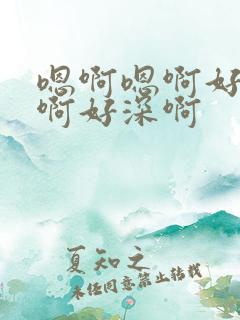 嗯啊嗯啊好
啊好深啊
夏知之
未经同意禁止转载